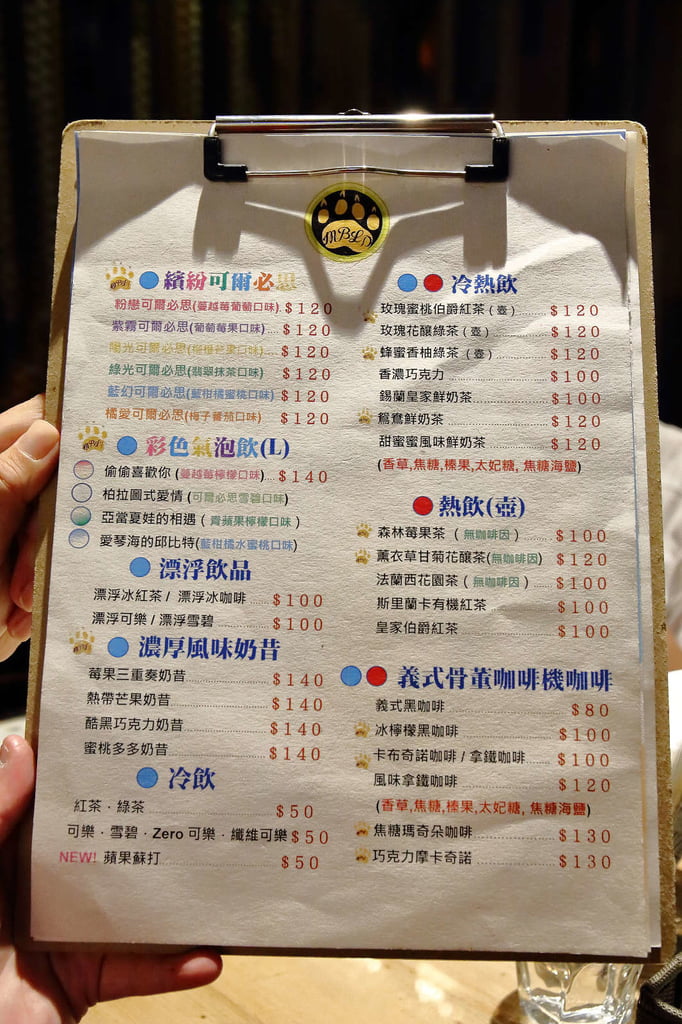 MBLD
繽紛可爾必思
粉戀可爾必思(蔓越莓葡萄口味) $120
紫霧可爾必思(葡萄莓果口味) $120
陽光可爾必思(檸檬芒果口味) $120
綠光可爾必思(翡翠抹茶口味) $120
藍幻可爾必思(藍柑橘蜜桃口味) $120
橘愛可爾必思(梅子蕃茄口味) $120
彩色氣泡飲(L)
偷偷喜歡你(蔓越莓檸檬口味) $140
柏拉圖式愛情(可爾必思雪碧口味)
亞當夏娃的相遇(青蘋果檸檬口味)
愛琴海的邱比特(藍柑橘水蜜桃口味)
漂浮飲品
漂浮冰紅茶 / 漂浮冰咖啡 $100
漂浮可樂 / 漂浮雪碧 $100
濃厚風味奶昔
莓果三重奏奶昔 $140
熱帶芒果奶昔 $140
酷黑巧克力奶昔 $140
蜜桃多多奶昔 $140
冷飲
紅茶．綠茶 $50
可樂．雪碧．Zero 可樂．纖維可樂 $50
NEW! 蘋果蘇打 $50
冷熱飲
玫瑰蜜桃伯爵紅茶(壺) $120
玫瑰花釀綠茶(壺) $120
蜂蜜香柚綠茶(壺) $120
香濃巧克力 $100
錫蘭皇家鮮奶茶 $100
鴛鴦鮮奶茶 $120
甜蜜蜜風味鮮奶茶 $120
(香草,焦糖,榛果,太妃糖, 焦糖海鹽)
熱飲(壺)
森林莓果茶(無咖啡因) $100
薰衣草甘菊花釀茶(無咖啡因) $120
法蘭西花園茶(無咖啡因) $100
斯里蘭卡有機紅茶 $100
皇家伯爵紅茶 $100
義式骨董咖啡機咖啡
義式黑咖啡 $80
冰檸檬黑咖啡 $100
卡布奇諾咖啡 / 拿鐵咖啡 $100
風味拿鐵咖啡 $120
(香草,焦糖,榛果,太妃糖, 焦糖海鹽)
焦糖瑪奇朵咖啡 $130
巧克力摩卡奇諾 $130